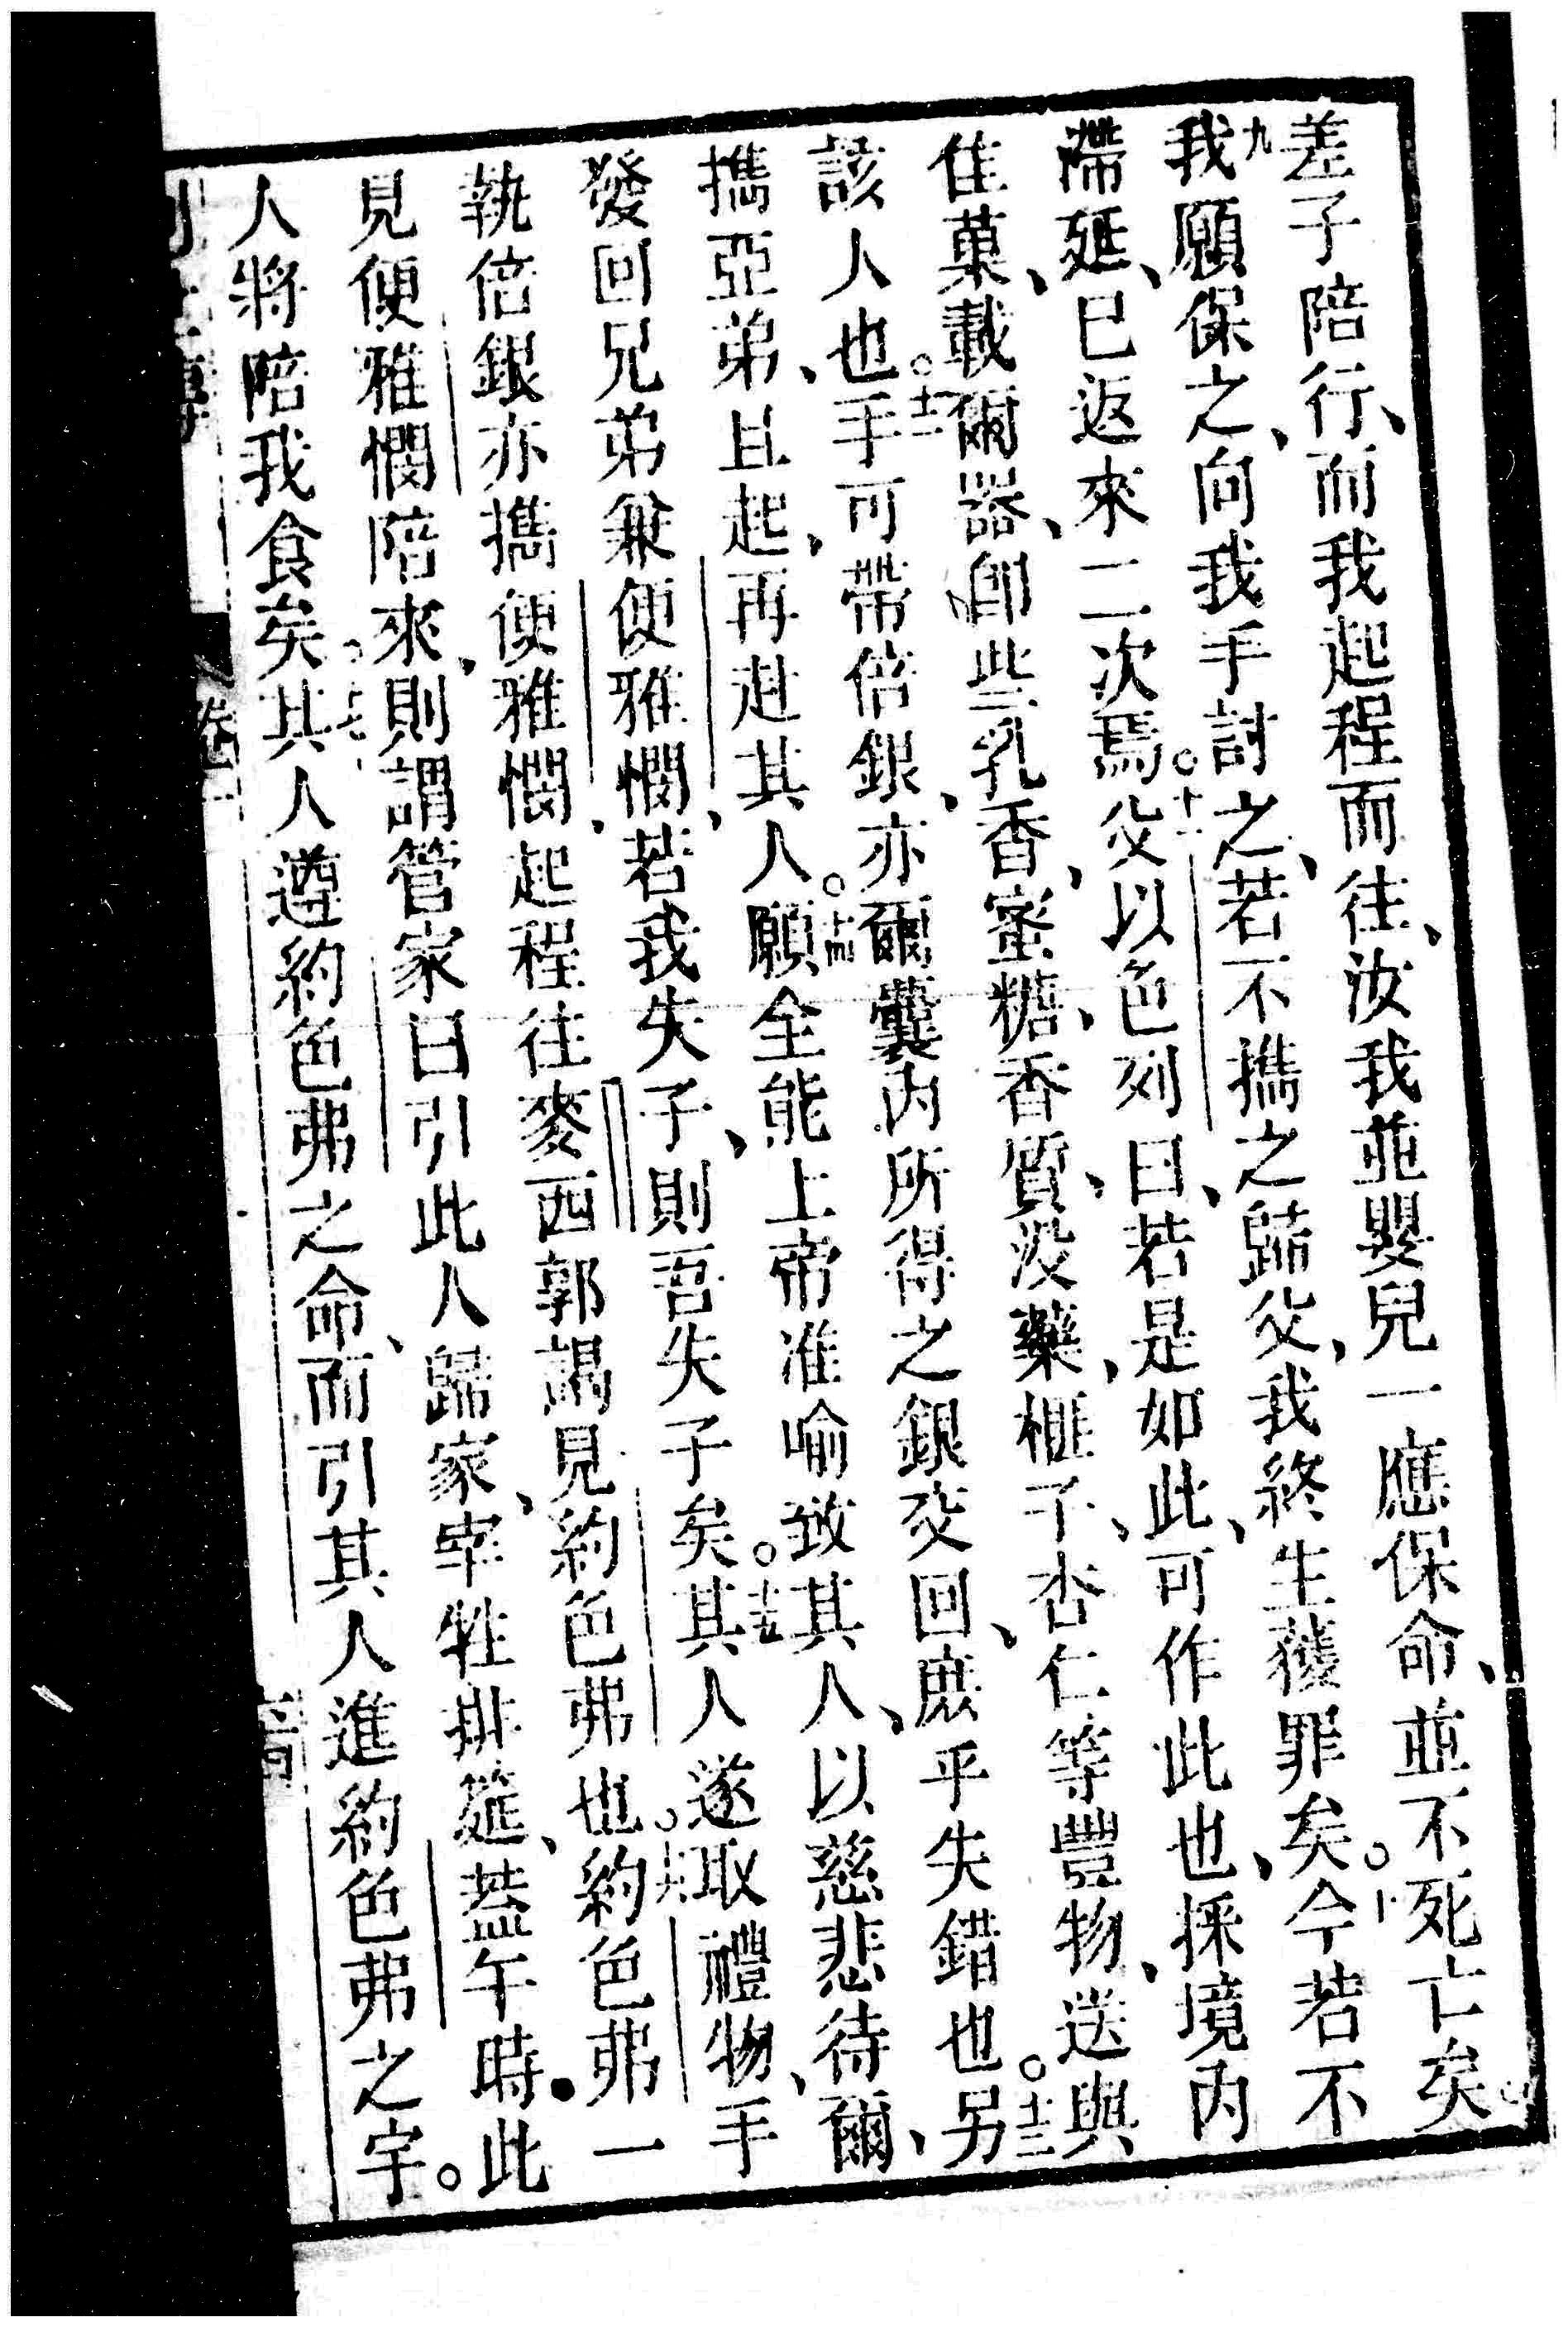 差子陪行、而我起程而往、汝我並嬰兒一應保命、並不死亡矣
九我願保之、向我手討之、若不攜之歸父、我終生獲罪矣。十今若不
滯延、已返來二次焉。十一父以色列曰、若是如此、可作此也、採境內
佳菓、載爾器、卽些乳香、蜜糖、香質、沒藥、榧子、杏仁等豐物、送與
該人也。十二手可帶倍銀、亦爾囊內所得之銀交回、庶乎失錯也。十三另
攜亞弟、且起、再赴其人。十四願全能上帝准喻致其人、以慈悲待爾、
發回兄弟兼便雅憫、若我失子、則吾失子矣。十五其人遂取禮物、手
執倍銀亦攜便雅憫、起程往麥西郭謁見約色弗也。十六約色弗一
見便雅憫陪來、則謂管家曰引此人歸家、宰牲排筵、蓋午時此
人將陪我食矣。十七其人遵約色弗之命、而引其人進約色弗之宇。